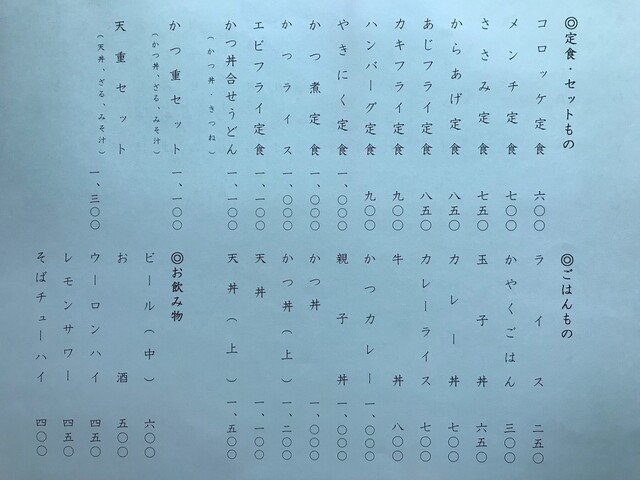 ◎定食・セットもの
コロッケ定食 六〇〇
メンチ定食 七〇〇
ささみ定食 七五〇
からあげ定食 八五〇
あじフライ定食 八五〇
カキフライ定食 九〇〇
ハンバーグ定食 九〇〇
やきにく定食 一、〇〇〇
かつ煮定食 一、〇〇〇
かつライス 一、〇〇〇
エビフライ定食 一、一〇〇
かつ丼合せうどん 一、一〇〇
（かつ丼・きつね）
かつ重セット 一、一〇〇
（かつ丼、ざる、みそ汁）
天重セット 一、三〇〇
（天丼、ざる、みそ汁）
◎ごはんもの
ライス 二五〇
かやくごはん 三〇〇
玉子丼 六五〇
カレー丼 七〇〇
カレーライス 七〇〇
牛丼 八〇〇
かつカレー 一、〇〇〇
親子丼 一、〇〇〇
かつ丼 一、〇〇〇
かつ丼（上） 一、二〇〇
天丼 一、一〇〇
天丼（上） 一、五〇〇
◎お飲み物
ビール（中） 六〇〇
お酒 五〇〇
ウーロンハイ 四五〇
レモンサワー 四五〇
そばチューハイ 四〇〇